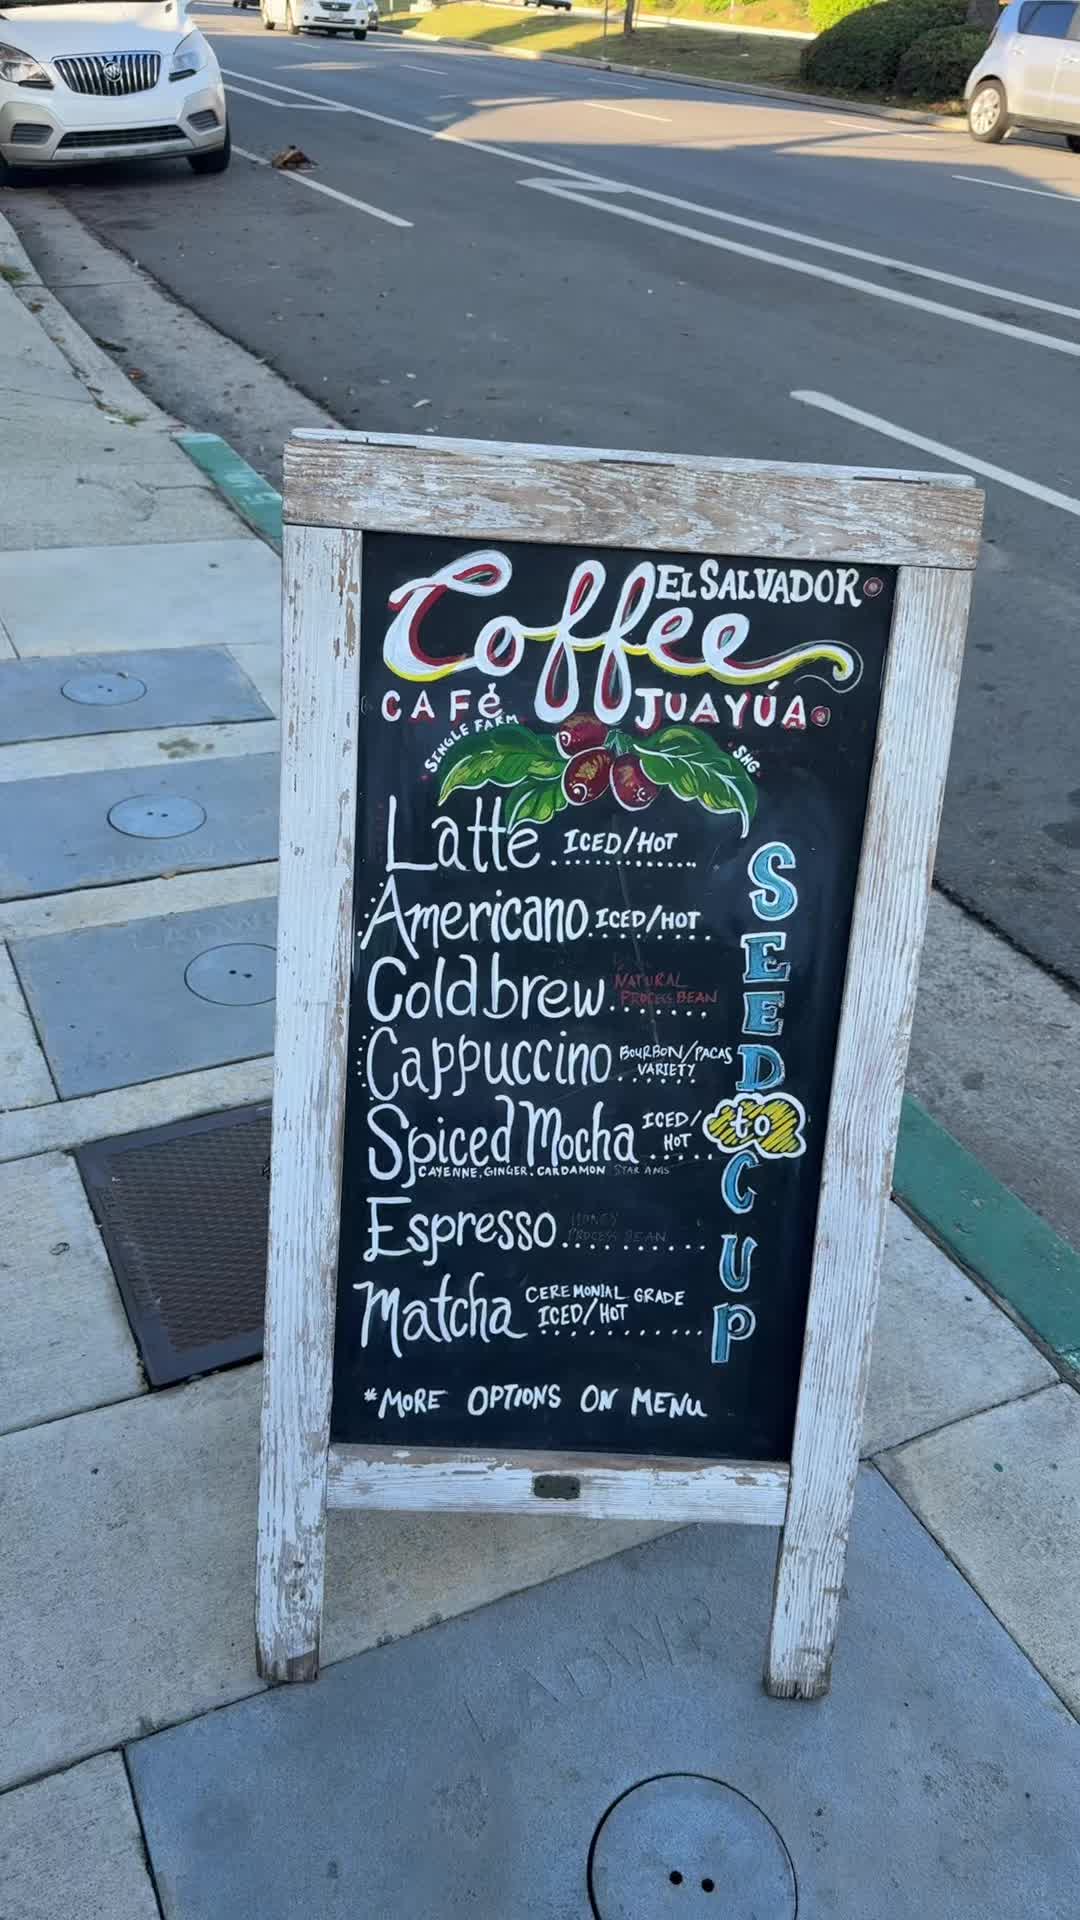 Coffee EL SALVADOR
CAFé JUAYÚA
SINGLE FARM SHG
Latte ICED/HOT
Americano ICED/HOT
Cold brew NATURAL PROCESS BEAN
Cappuccino BOURBON/PACAS VARIETY
Spiced Mocha ICED/HOT
CAYENNE, GINGER, CARDAMON STAR ANIS
Espresso HONEY PROCESS BEAN
Matcha CEREMONIAL GRADE ICED/HOT
*MORE OPTIONS ON MENU
SEED to CUP
LADWP